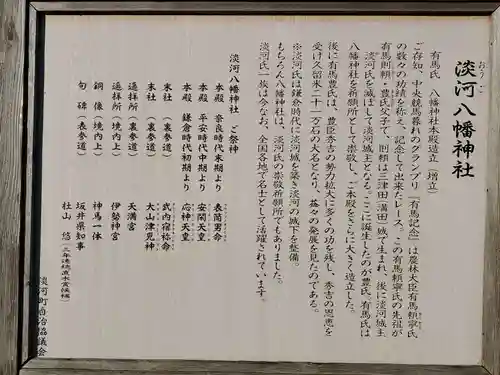 おうご
淡河八幡神社
有馬氏　八幡神社本殿造立（増立）
ご存知、中央競馬暮れのグランプリ「有馬記念」は農林大臣有馬頼寧氏
の数々の功績を称え、記念して出来たレース。この有馬頼寧氏の先祖が
有馬則頼・豊氏父子で、則頼は三津田（満田）城で生まれ、後に淡河城主
淡河氏を滅ぼして淡河城主となる。ここに誕生したのが豊氏。有馬氏は
八幡神社を祈願所として崇敬し、ご本殿をさらに大きく造立した。
後に有馬豊氏は、豊臣秀吉の勢力拡大に多くの功を残し、秀吉の恩恵を
受け久留米二十一万石の大名となり、益々の発展を見たのである。
※淡河氏は鎌倉時代に淡河城を築き淡河の城下を整備。
もちろん八幡神社は、淡河氏の崇敬祈願所でもありました。
淡河氏一族は今なお、全国各地で名士として活躍されています。
淡河八幡神社　ご祭神
本殿　奈良時代末期より　表筒男命
本殿　平安時代中期より　安閑天皇
本殿　鎌倉時代初期より　応神天皇
末社　（裏参道）　武内宿祢命
末社　（裏参道）　大山津見神
遥拝所（裏参道）　天満宮
遥拝所（境内上）　伊勢神宮
銅　像（境内上）　神馬一体
句　碑（表参道）　坂井県知事
杜山　悠（三年連続直木賞候補）
淡河町自治協議会